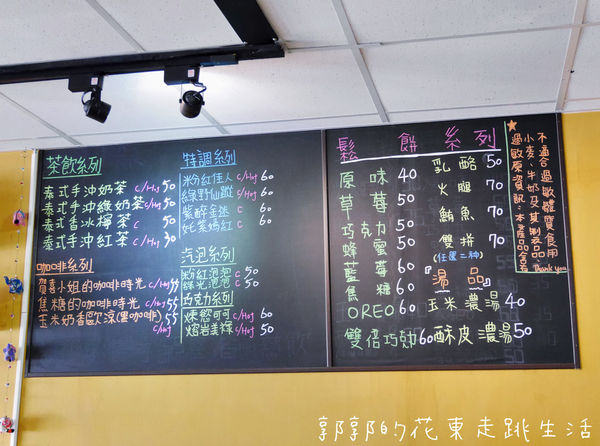 茶飲系列
泰式手沖奶茶 C/Hot 50
泰式手沖綠奶茶 C/Hot 50
泰式香冰檸茶 C 50
泰式手沖紅茶 C/Hot 30
咖啡系列
賀喜小姐的咖啡時光 C/Hot 55
焦糖的咖啡時光 C/Hot 55
玉米奶香歐涼(黑咖啡) 55
C/Hot
特調系列
粉紅佳人 C/Hot 60
綠野仙蹤 C/Hot 60
紫醉金迷 C 60
奼紫嫣紅 C 60
汽泡系列
粉紅泡泡 C 50
綠光泡泡 C 50
巧克力系列
煉慾可可 C/Hot 60
熔岩美祿 C/Hot 50
鬆餅系列
原味 40
草莓 50
巧克力 50
蜂蜜 60
藍莓 60
焦糖 60
OREO 60
雙倍巧幼 60
乳酪 50
火腿 70
鮪魚 70
雙拼 70
(任選二種)
『湯品』
玉米濃湯 40
酥皮濃湯 50
★不適合過敏體質食用
小麥、牛奶及其製品
過敏原資訊:本產品含有
Thank you
郭郭的花東走跳生活